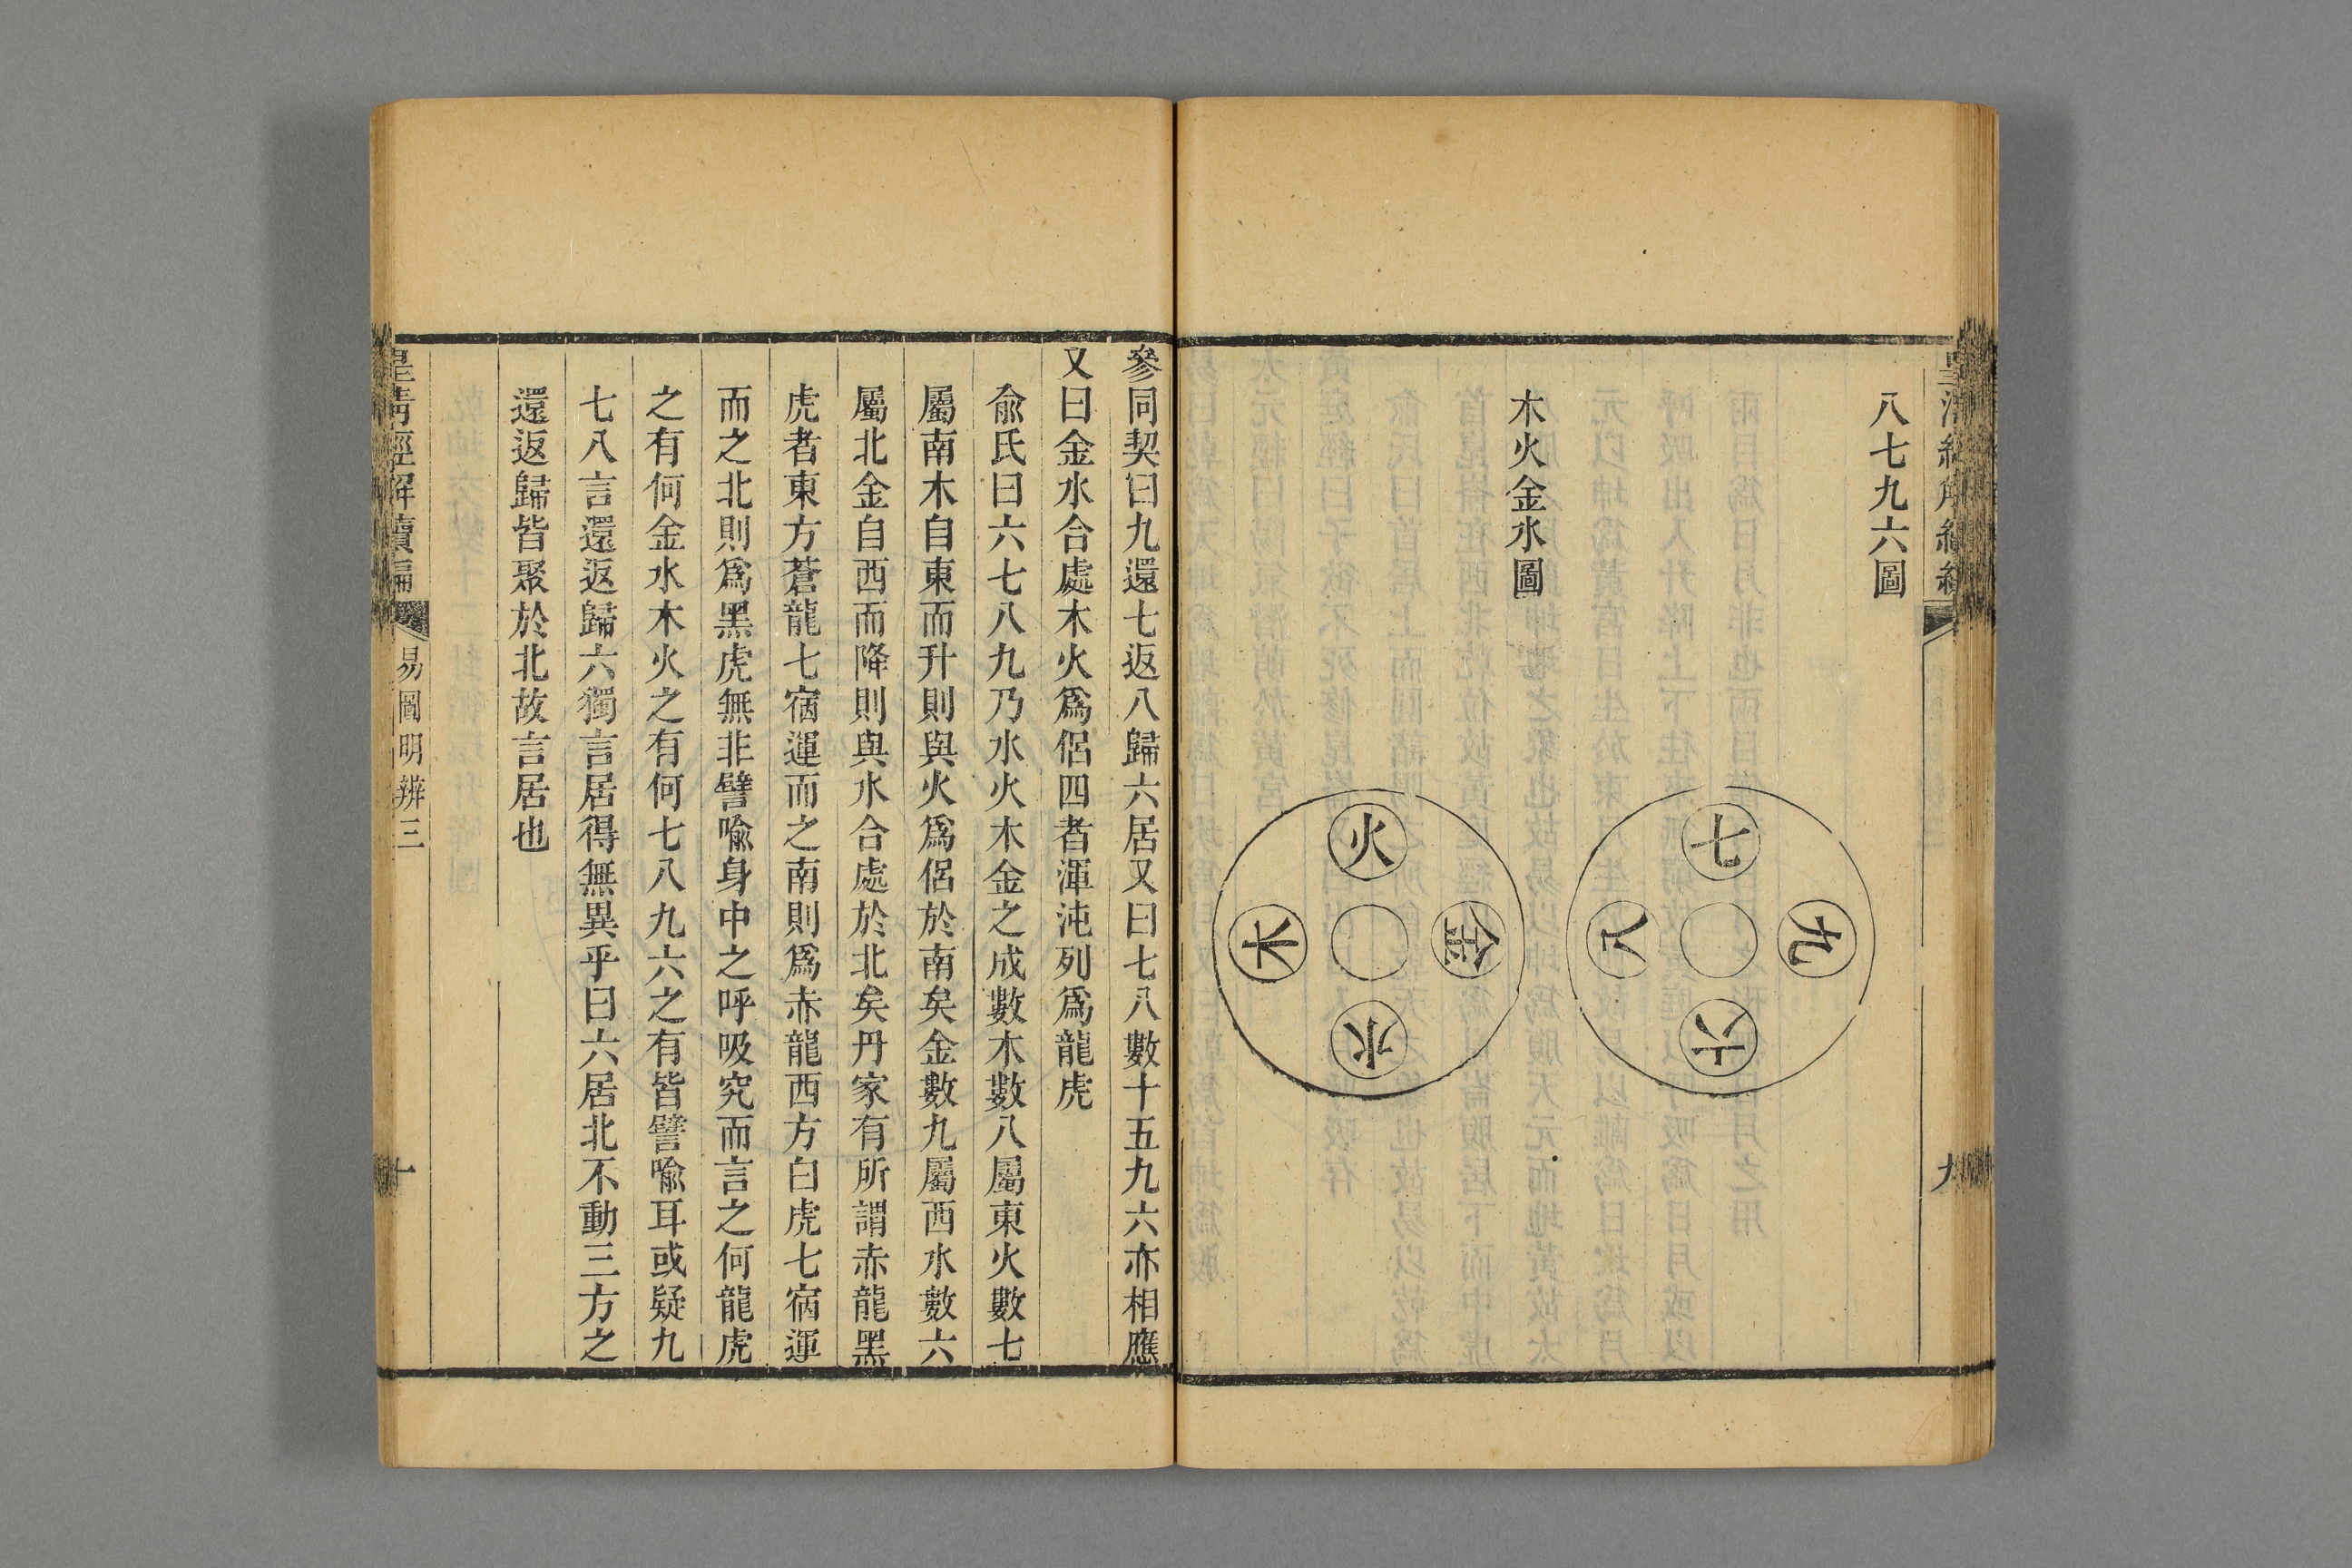 八七九六圖
七
九
八
六
木火金水圖
火
金
木
水
九
參同契曰九還七返八歸六居又曰七八數十五九六亦相應
又曰金水合處木火爲侶四者渾沌列爲龍虎
俞氏曰六七八九乃水火木金之成數木數八屬東火數七
屬南木自東而升則與火爲侶於南矣金數九屬西水數六
屬北金自西而降則與水合處於北矣丹家有所謂赤龍黑
虎者東方蒼龍七宿運而之南則爲赤龍西方白虎七宿運
而之北則爲黑虎無非譬喩身中之呼吸究而言之何龍虎
之有何金水木火之有何七八九六之有皆譬喩耳或疑九
七八言還返歸六獨言居得無異乎曰六居北不動三方之
還返歸皆聚於北故言居也
皇清經解續編
易圖明辨三
十